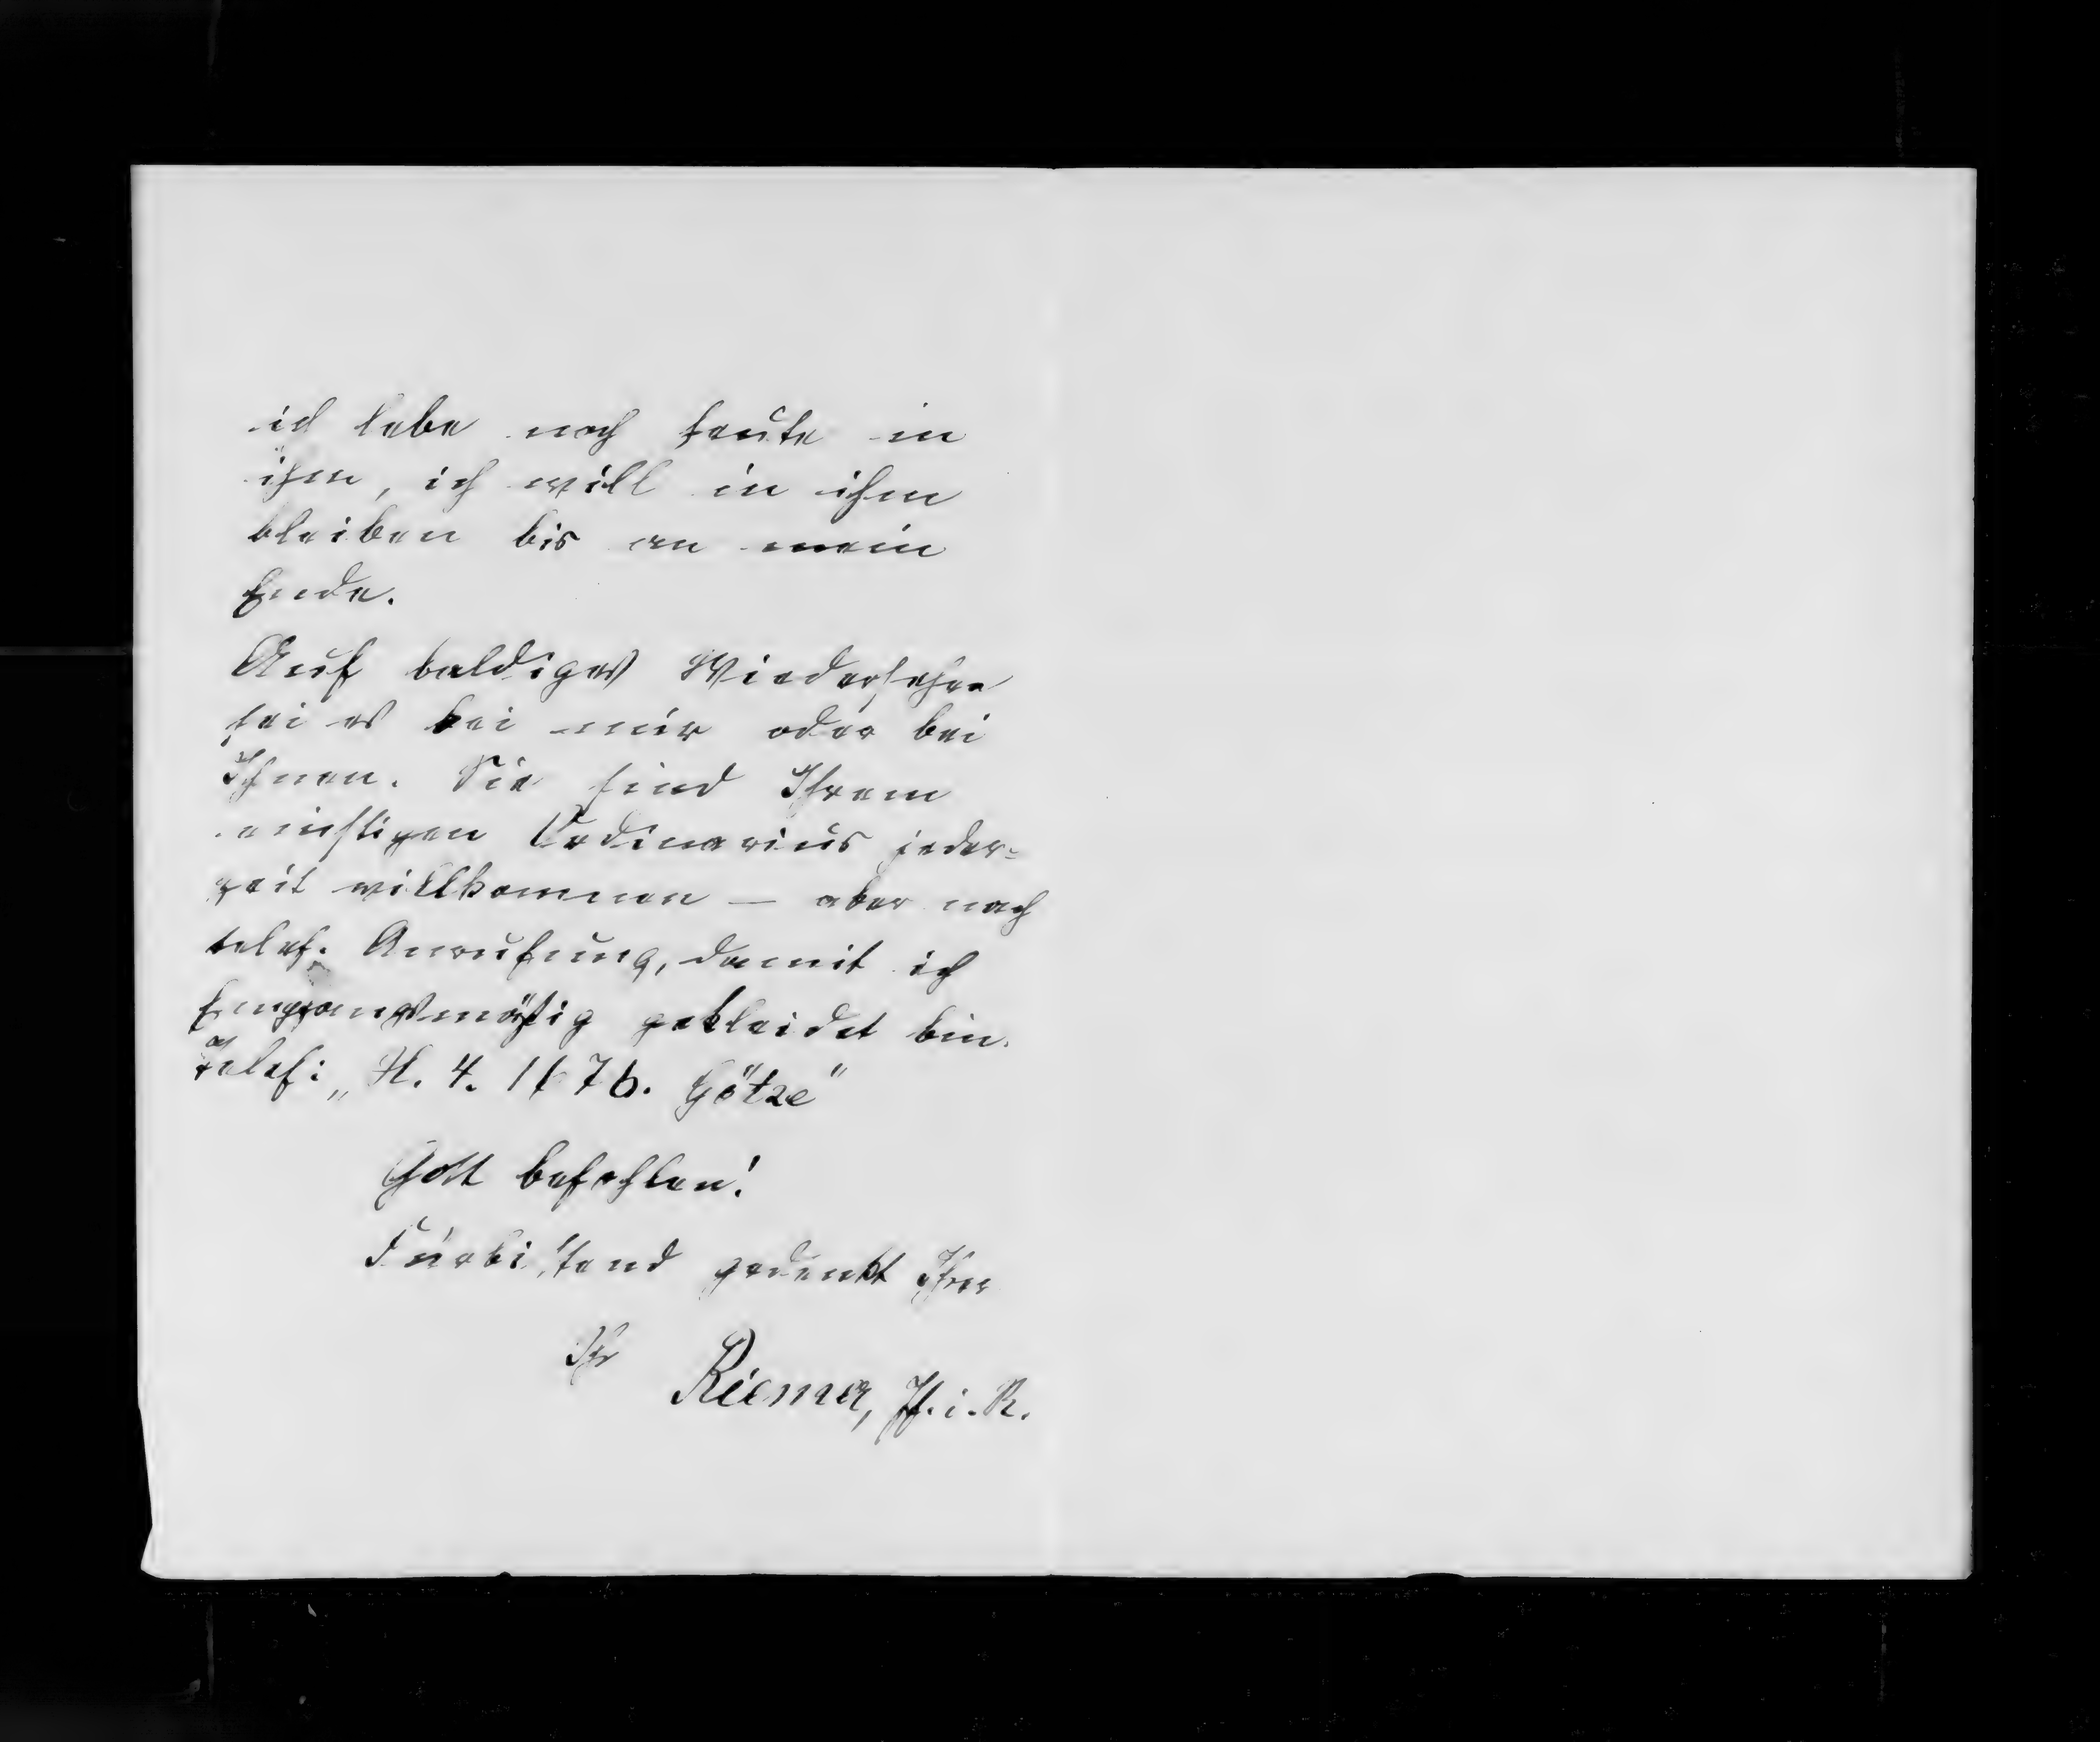 ich lebe noch heute in
ihm, ich will in ihm
bleiben bis an mein
Ende.
Auf baldiges Wiedersehen
sei es bei mir oder bei
Ihnen. Sie sind Ihrem
einstigen Ordinarius jeder=
zeit willkommen — aber nach
telef. Anrufung, damit ich
empfangsmäßig gekleidet bin.
Telef: „H. 4. 76. Götze"
Gott befohlen!
Fürbittend gedenkt Ihrer
Ihr
Riemer, Pf. i. R.